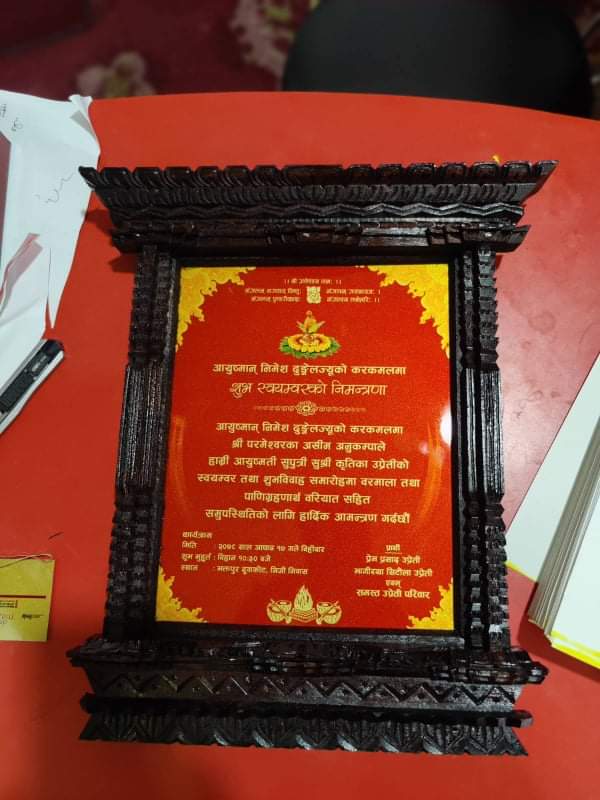 ।। श्री गणेशाय नमः ।।
मंगलम् भगवान विष्णुः मंगलम् गरुडध्वजः ।
मंगलम् पुण्डरीकाक्षः मंगलाय तनोहरिः ।।
आयुष्मान् निमेश ढुङ्गेलज्यूको करकमलमा
शुभ स्वयम्वरको निमन्त्रणा
आयुष्मान् निमेश ढुङ्गेलज्यूको करकमलमा
श्री परमेश्वरका असीम अनुकम्पाले
हाम्री आयुष्मती सुपुत्री सुश्री कृतिका उप्रेतीको
स्वयम्वर तथा शुभविवाह समारोहमा वरमाला तथा
पाणिग्रहणार्थ वरियात सहित
समुपस्थितिको लागि हार्दिक आमन्त्रण गर्दछौं
कार्यक्रम
मिति : २०७९ साल आषाढ १७ गते बिहीबार
शुभ मुहूर्त : बिहान १०:३० बजे
स्थान : भक्तपुर दुवाकोट, निजी निवास
प्रार्थी
प्रेम प्रसाद उप्रेती
भागीरथा सिटौला उप्रेती
एवम्
समस्त उप्रेती परिवार